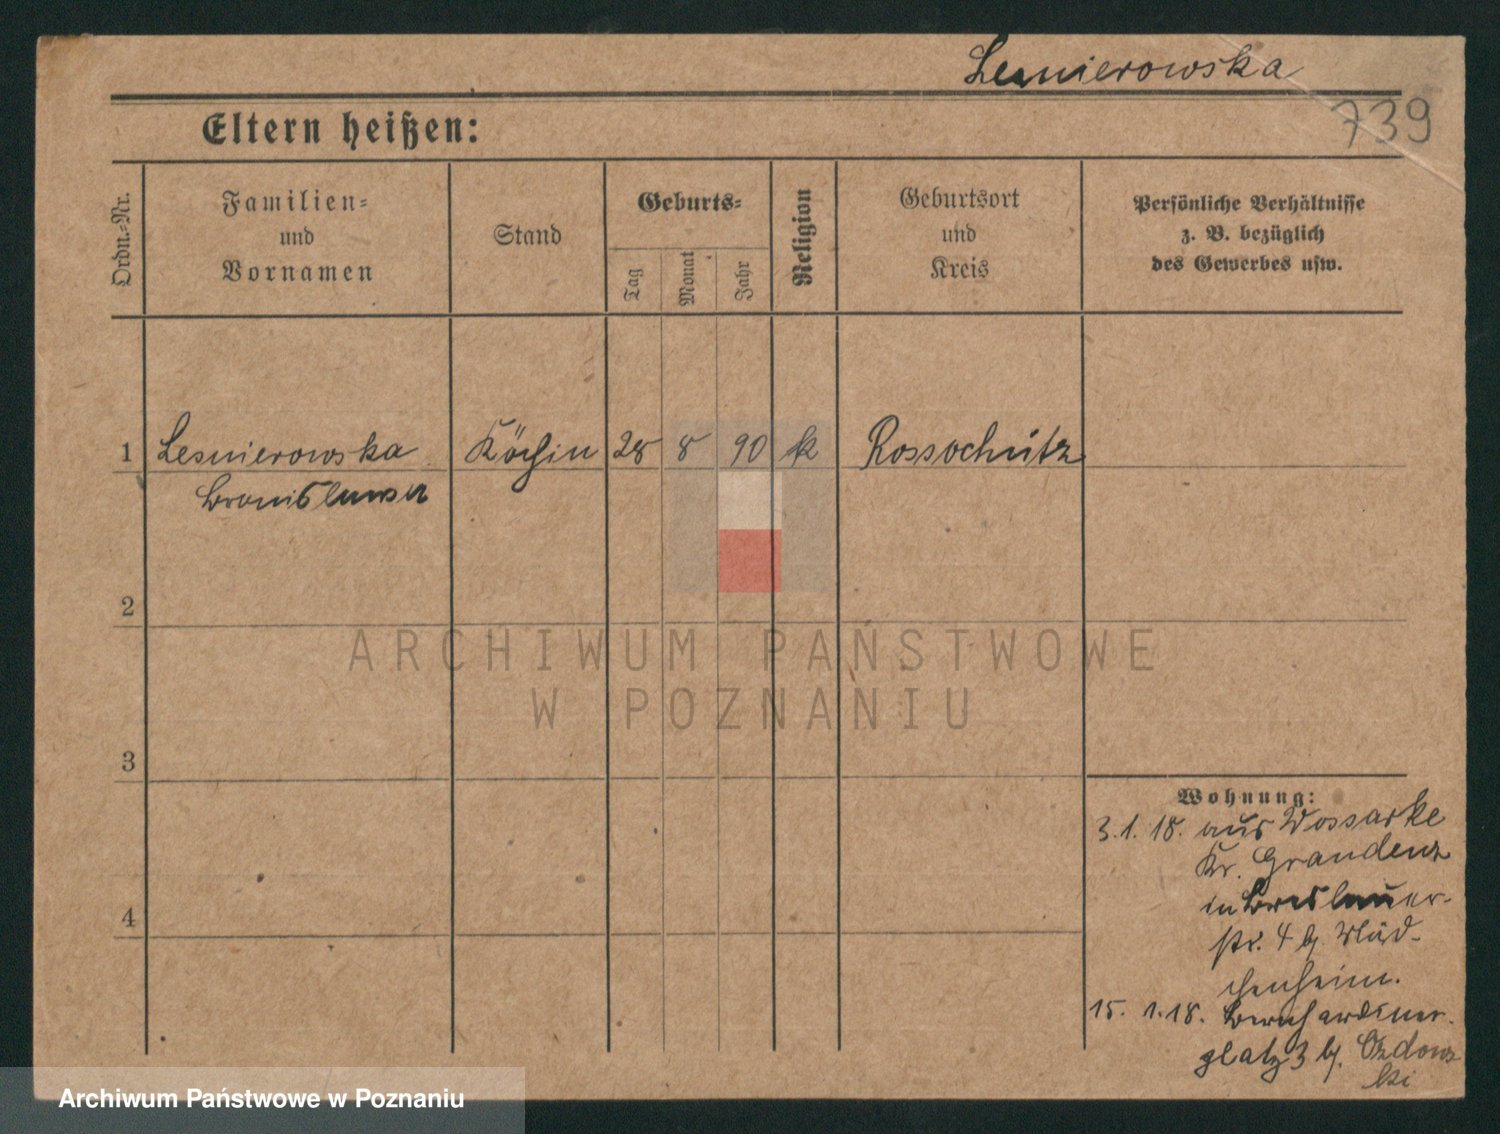 Lesnierowska
739
Eltern heißen:
Ordn.-Nr.
Familien-
und
Vornamen
Stand
Geburts-
Tag
Monat
Jahr
Religion
Geburtsort
und
Kreis
Persönliche Verhältnisse
z. B. bezüglich
des Gewerbes usw.
1 Lesnierowska Köchin 28 8 90 k Rossochütz
Bronislawa
2
ARCHIWUM PAŃSTWOWE
W POZNANIU
3
Wohnung:
3.1.18. aus Wossarke
Kr. Graudenz
in Breslauer-
str. 4 b. Mäd-
chenheim.
4
15. 1.18. Bernhardiner-
platz 3 b. Ozdows
ki
Archiwum Państwowe w Poznaniu